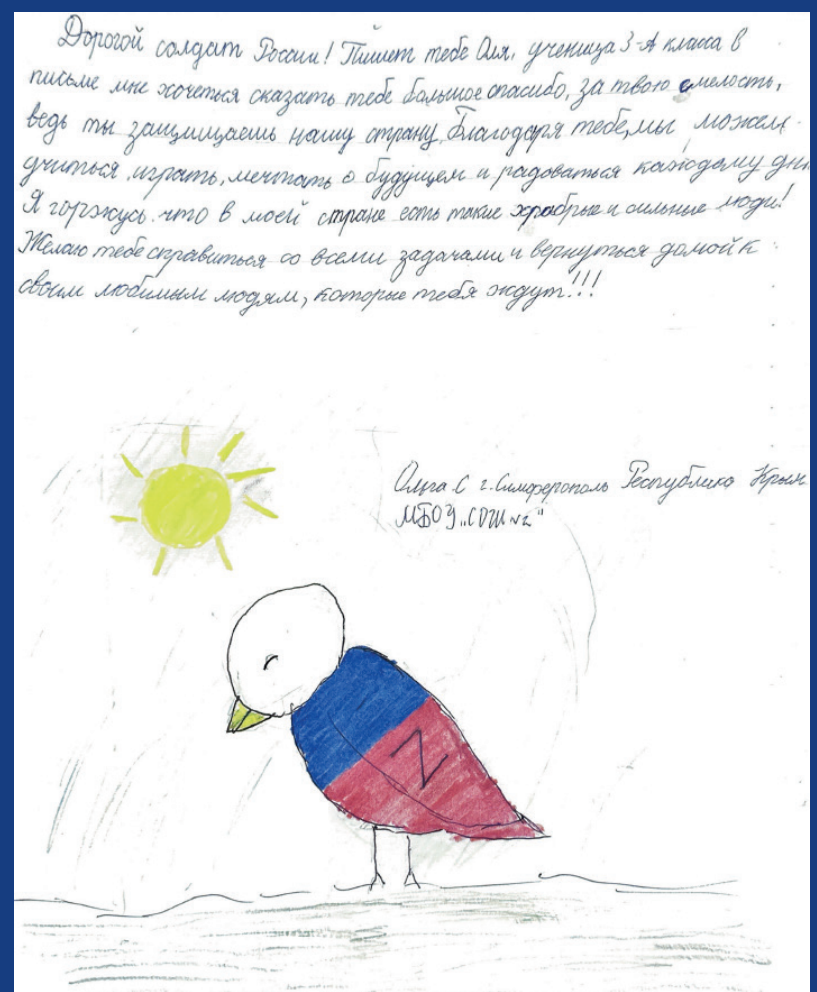 Дорогой солдат России! Пишет тебе Оля, ученица 3-А класа в
письме мне хочеться сказать тебе большое спасибо, за твою смелость,
ведь ты защищаешь нашу страну. Благодаря тебе, мы можем
учиться, играть, мечтать о будущем и радоваться каждому дн
Я горжусь что в моей стране есть такие храбрые и сильные люди!
Желаю тебе справиться со всеми задачами и вернуться домой к
своим любимым людям, которые тебя ждут!!!
Ольга С г. Симферополь Республика Крым
МБОУ „СОШ №2"
Z